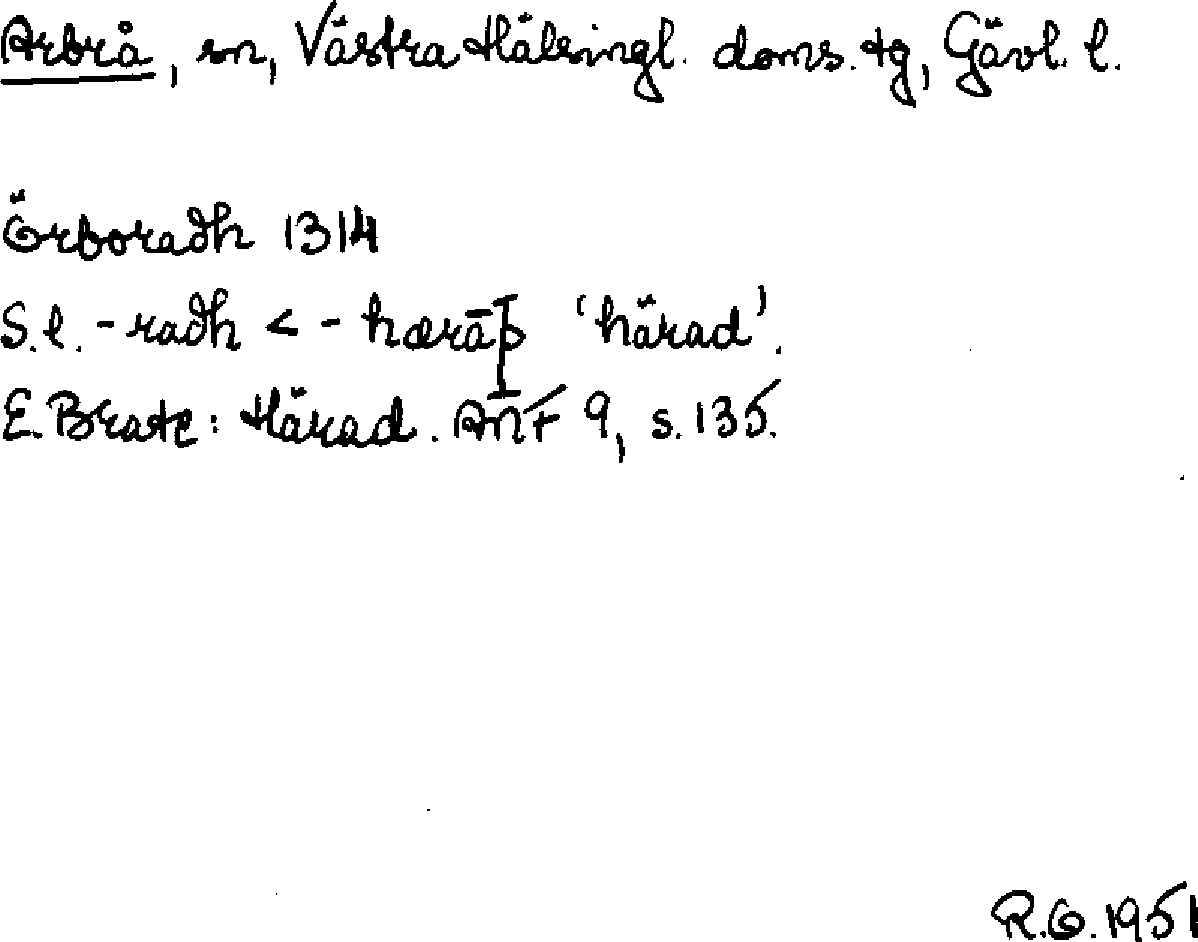 Arbrå, sn, Västra Hälsingl. doms. tg, Gävl. l.
Örboradh 1314
S.l. -radh < -hærāþ 'härad'.
E. Brate: Härad. ANF 9, s. 135.
R.O. 1951